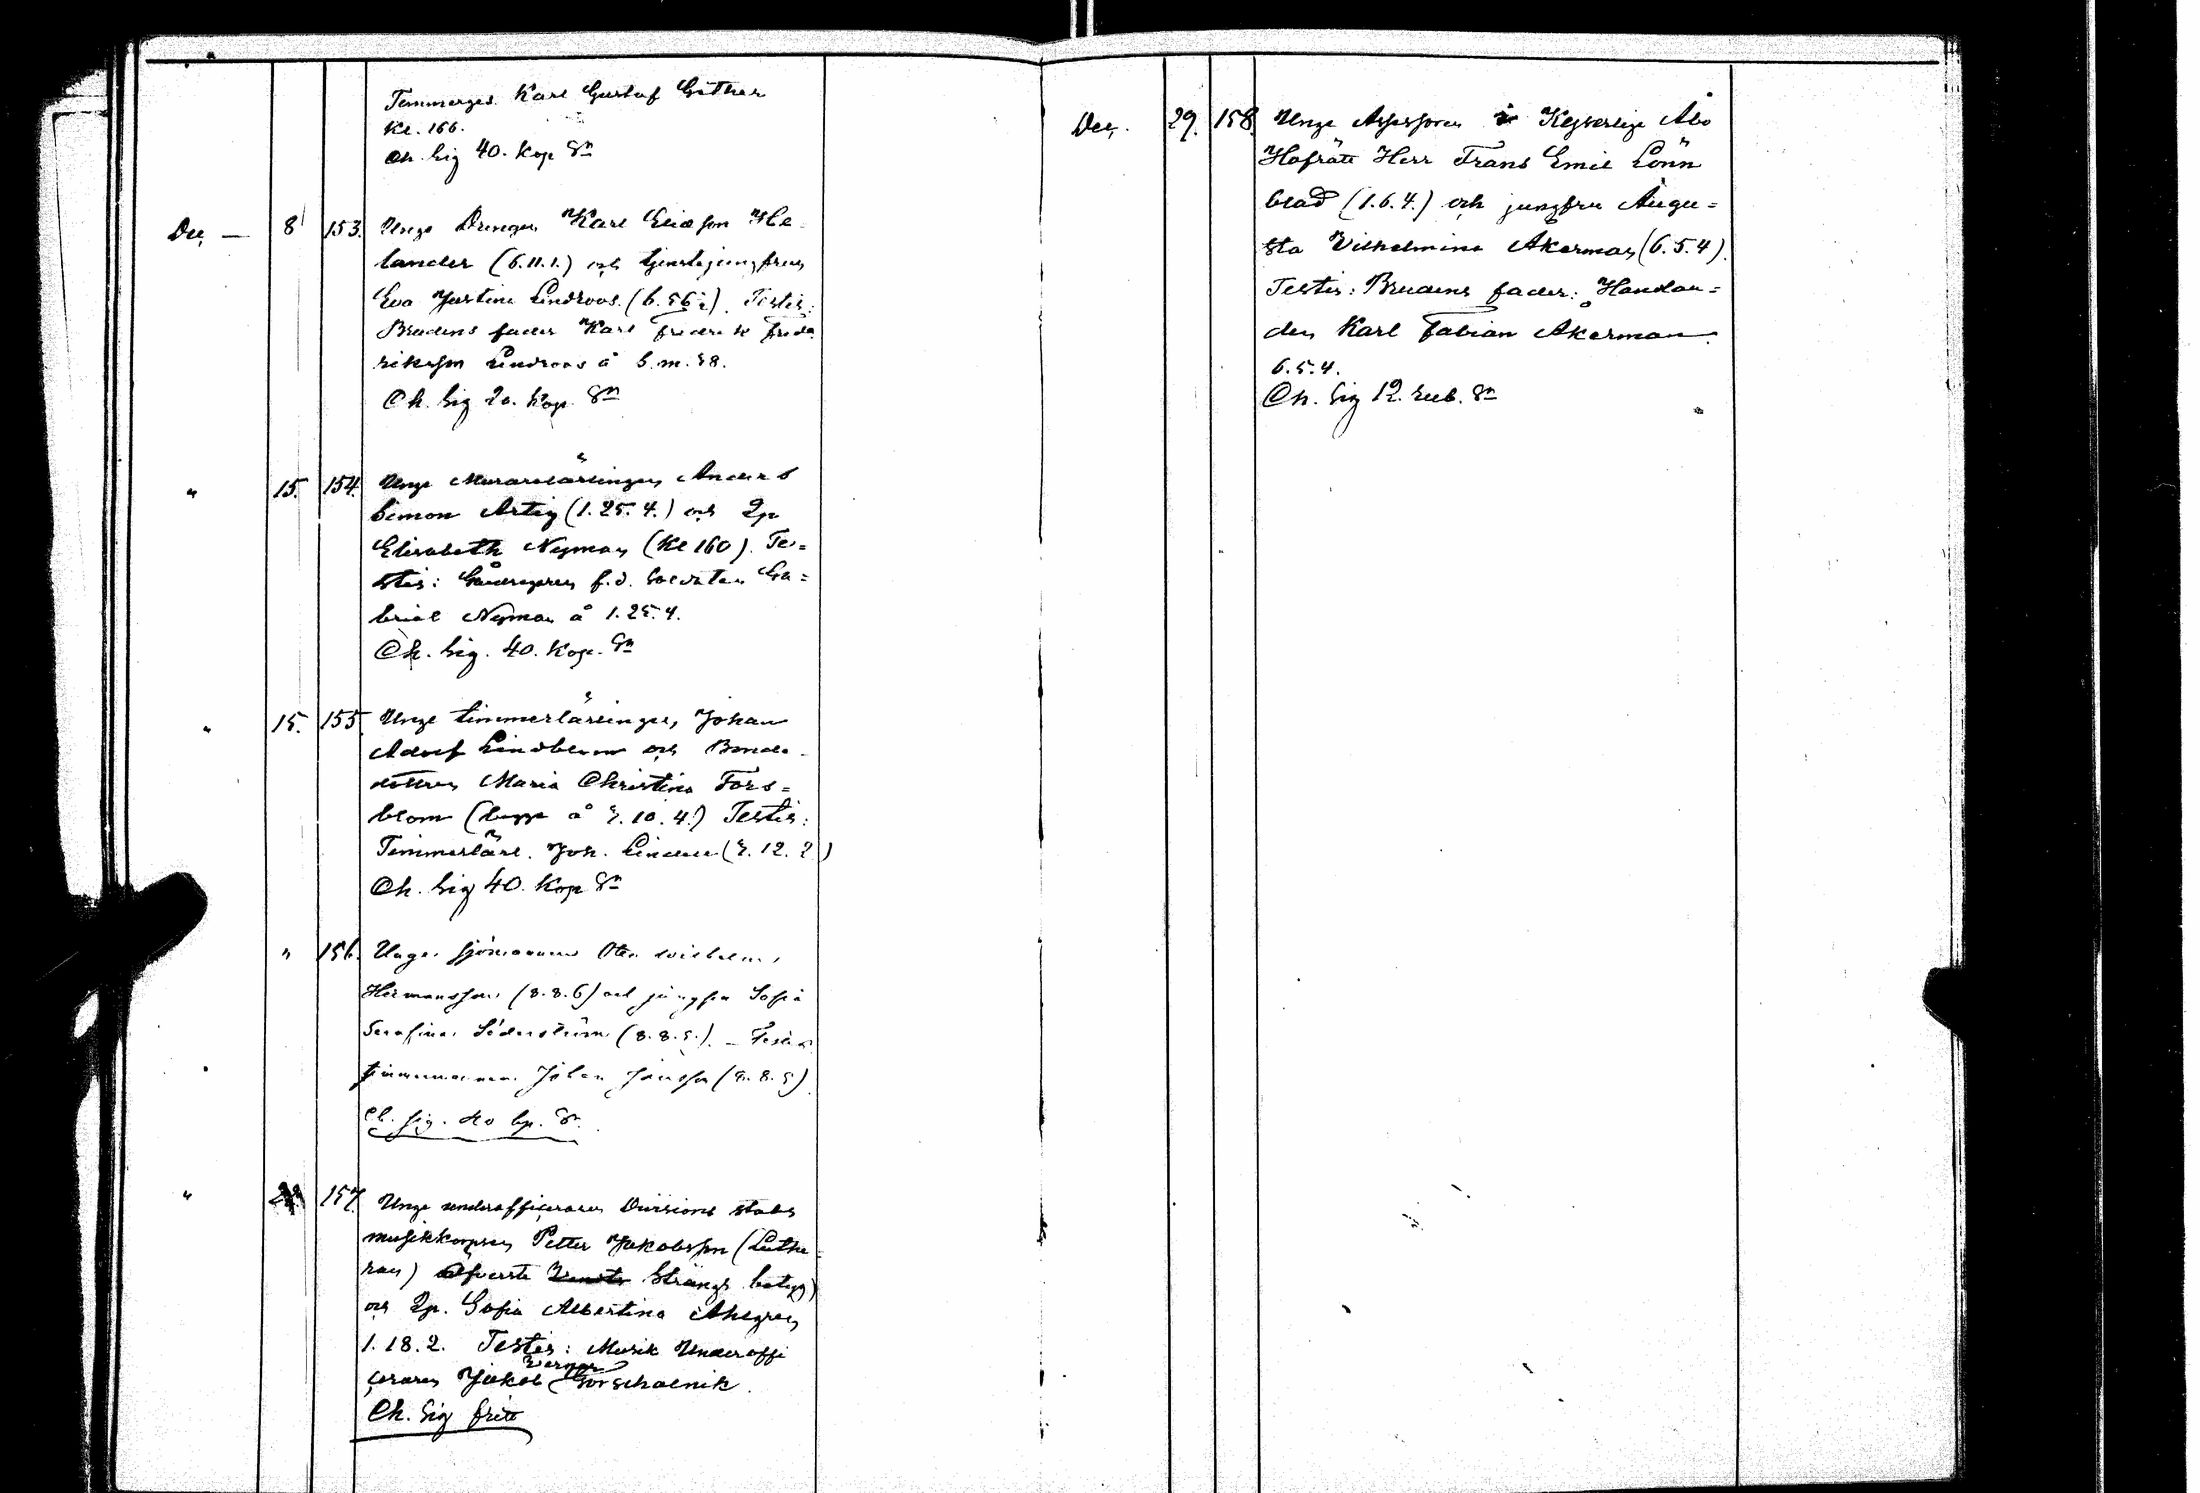 Timmerges. Karl Gustaf Göther
Kl. 166.
Ch. Sig 40. Kop Sr
Dec, — 8 153. Unge Drengen Karl Eliasson He-
lander (6.11.1.) och tjenstejungfrun
Eva Justina Lindroos. (6.56.) Testis:
Brudens fader Karl Fredrik Fred-
riksson Lindroos å S.m.88.
Ch. Sig 20. Kop. Sr
" 15. 154. Unge Murarelärlingen Anders
Simon Artig (1.25.4.) och Qp
Elisabeth Nyman (Kl 160). Te-
stis: Gårdegaren f.d. Soldaten Ga-
briel Nyman å 1.25.4.
Ch. Sig. 40. Kop. Sr
" 15. 155. Unge timmerlärlingen, Johan
Adolf Lindblom och Bonde-
dottren Maria Christina Fors-
blom (begge å 7.10.4.) Testis:
Timmerlärl. Joh. Linden (7.12.2)
Ch. Sig 40. Kop Sr
" 156. Unge sjömannen Otto Wilhelm
Hermansson (8.8.6) och jungfru Sofia
Serafina Söderström (8.8.5.). – Testis
timmerman Johan Jansson (8.8.5)
Ch. Sig. 40 kp. Sr.
" 157. Unge underofficeraren Divisions stabs
musikkorpsen Petter Jakobsson (Luthe-
ran) öfverste Strängs betyg)
och Qp. Sofia Albertina Ahlgren
1.18.2. Testis: Musik Underoffi
ceraren Jakob Werner Gorschalnik.
Ch. Sig fritt
Dec. 29. 158. Unge Assessoren i Kejserliga Åbo
Hofrätt Herr Frans Emil Lönn
blad (1.6.4.) och jungfru Augu-
sta Vilhelmina Åkerman (6.5.4).
Testis: Brudens fader: Handlan-
den Karl Fabian Åkerman.
6.5.4.
Ch. Sig 12. rub. Sr